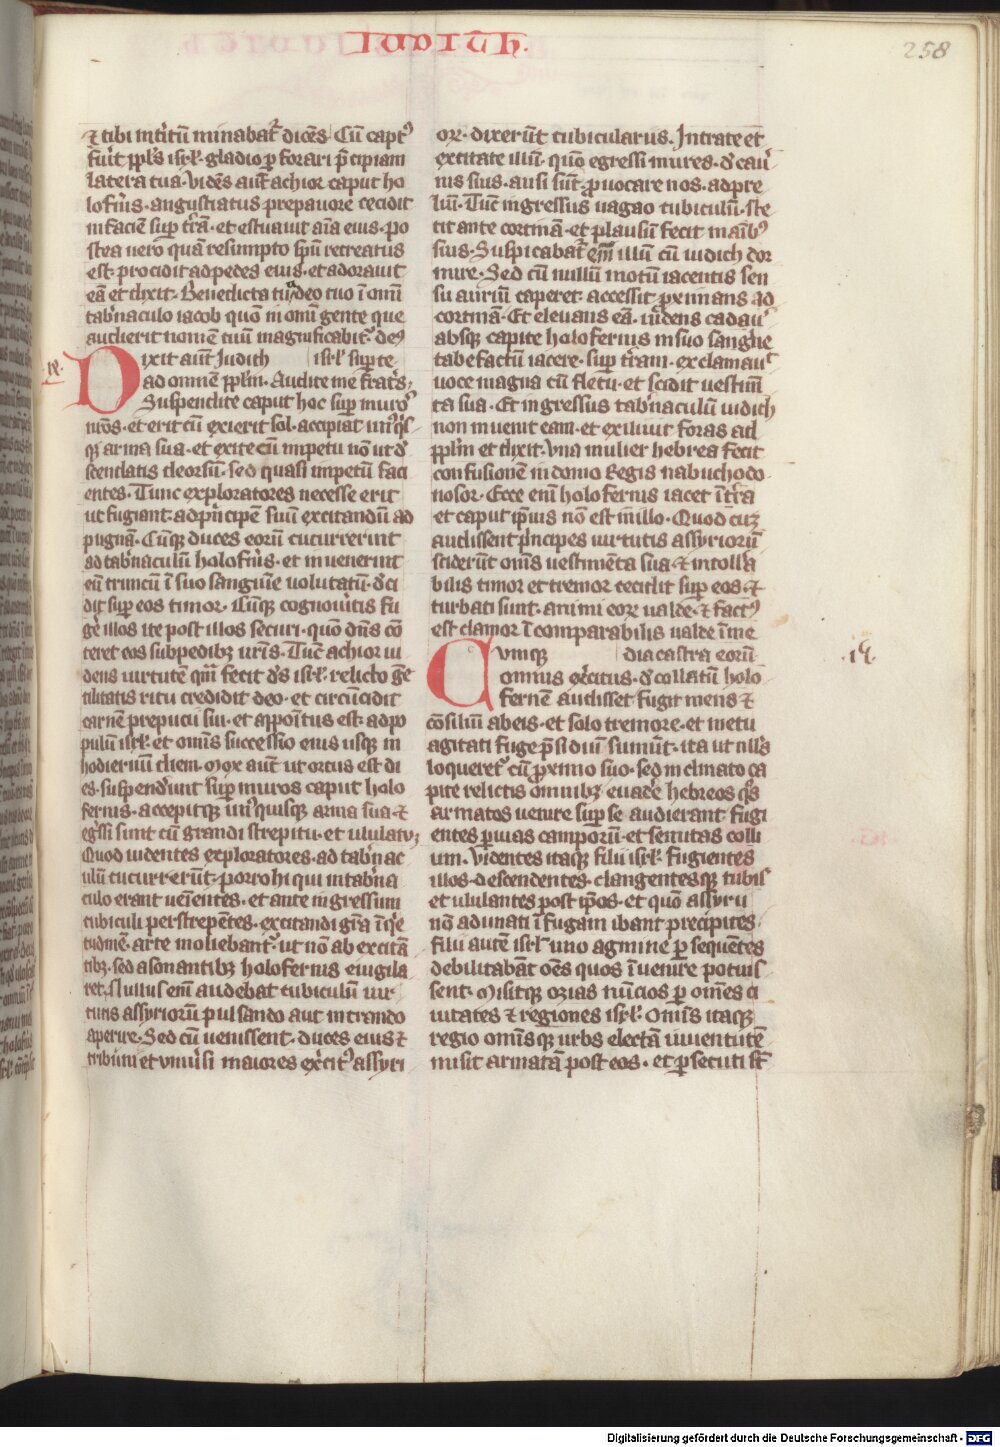 IUDITH.
258
⁊ tibi int̾itū minabat᷑ dicēs. Cū capt⁹
fu̾it ppl̾s isrl̾. gladio ꝑ forari p̄cipiam
latera tua. Vidēs aut̄ achior caput ho
lofn̾is. angustiatus prepauore cecidit
in faciē suꝑ t̾rā. et estuauit aīa eius. po
stea uero quā resumpto sp̄u recreatus
est. procidit ad pedes eius. et adorauit
eā et dixit. Benedicta tu a deo tuo ī om̄i
tab̾naculo iacob quō in om̄i gente que
audierit nomē tuū magnificabit᷑. de⁹
Dixit aut̄ Judith isrl̾ suꝑ te
ad omnē ppl̾m. Audite me fratr̾s.
Suspendite caput hoc suꝑ muros
nr̄os. et erit cū exierit sol. accipiat un⁹q̾s
qꝫ arma sua. et exite cū impetu nō ut d̾
scendatis deorsū. sed quasi impetū faci
entes. Tunc exploratores necesse erit
ut fugiant. ad pn̾cipē suū excitandū ad
pugnā. Cūqꝫ duces eorū cucurrerint
ad tab̾naculū holofn̾is. et inuenerint
eū truncū ī suo sanguīe uolutatū. d̾ci
dit suꝑ eos timor. Cūqꝫ cognou̾itis fu
ge̾ illos ite post illos securi. quō dn̄s cō
teret eos sub pedibꝫ ur̄is. Tūc achior ui
dens uirtutē quā fecit d̄s isrl̾. relicto ge̾
tilitatis ritu credidit deo. et circūcidit
carnē prepucii sui. et appoītus est. ad po
pulū isrl̾. et omīs successio eius usqꝫ in
hodiernū diem. Mox aut̄ ut ortus est di
es. suspend̾unt suꝑ muros caput holo
fernis. accepitqꝫ un⁹quisqꝫ arma sua. ⁊
eg̾ssi sunt cū grandi strepitu. et ululatu.
Quod uidentes exploratores. ad tab̾nac
ulū cucurrerūt. Porro hi qui in tab̾na
culo erant ueīentes. et ante ingressum
cubiculi perstrepētes. excitandi gr̄a īq̾e
tudinē. arte moliebant᷑. ut nō ab excitā
tibꝫ. sed a sonantibꝫ holofernis euigila
ret. Nullus enī audebat cubiculū uir
tutis assyriorū pulsando aut intrando
aperire. Sed cū uenissent. duces eius ⁊
tribuni et uniu̾si maiores ex̾cit⁹ assyri
orꝝ. dixerūt cubiculariis. Intrate et
excitate illū. quō egressi mures. d̾ cau̾
nis suis. ausi sūt ꝓuocare nos. ad pre
liū. Tūc ingressus uagao cubiculū. ste
tit ante cortinā. et plausū fecit maībꝫ
suis. Suspicabat᷑ enī illū cū iudich dor
mire. Sed cū nullū motū iacentis sen
su auriū caperet. accessit ꝓximans ad
cortinā. Et eleuans eā. uidens cadau̾
absqꝫ capite holofernis in suo sanguīe
tabefactū iacere. suꝑ t̾ram. exclamauit
uoce magna cū fletu. et scidit uestim̄
ta sua. Et ingressus tab̾naculū iudich
non inuenit eam. et exiliuit foras ad
ppl̾m et dixit. Vna mulier hebrea fecit
confusionē in domo Regis nabuchodo
nosor. Ecce enī holofernis iacet ī t̾ra
et caput ip̄ius nō est in illo. Quod cuꝫ
audissent pn̾cipes uirtutis assyriorū
sciderūt om̄is uestimenta sua. ⁊ intoll̾a
bilis timor et tremor cecidit suꝑ eos. ⁊
turbati sunt. animi eorꝝ ualde. ⁊ fact⁹
est clamor īcomparabilis ualde ī me
Cumqꝫ dia castra eorū.
omnis ex̾citus. d̾collatū holo
fernē audisset fugit mens ⁊
cōsiliū ab eis. et solo tremore. et metu
agitati fuge p̄sidiū sumūt. ita ut null̾s
loqueret᷑ cū ꝓximo suo. sed inclinato ca
pite relictis omnibꝫ euade̾ hebreos q̾s
armatos uenire suꝑ se audierant fugi
entes ꝑ uias camporū. et semitas colli
um. Videntes itaqꝫ filii isrl̾. fugientes
illos. descendentes. clangentesqꝫ tubis
et ululantes post ip̄os. et quō assyrii
nō adunati ī fugam ibant precipites.
Filii autē isrl̾ uno agmine ꝑsequētes
debilitabāt oēs quos īuenire potuis
sent. Misitqꝫ ozias nūcios ꝑ omēs ci
uitates ⁊ regiones isrl̾. Omīs itaqꝫ
regio omīsqꝫ urbs electā iuuentutē
misit armatā post eos. et ꝑsecuti st̄
Digitalisierung gefördert durch die Deutsche Forschungsgemeinschaft - DFG